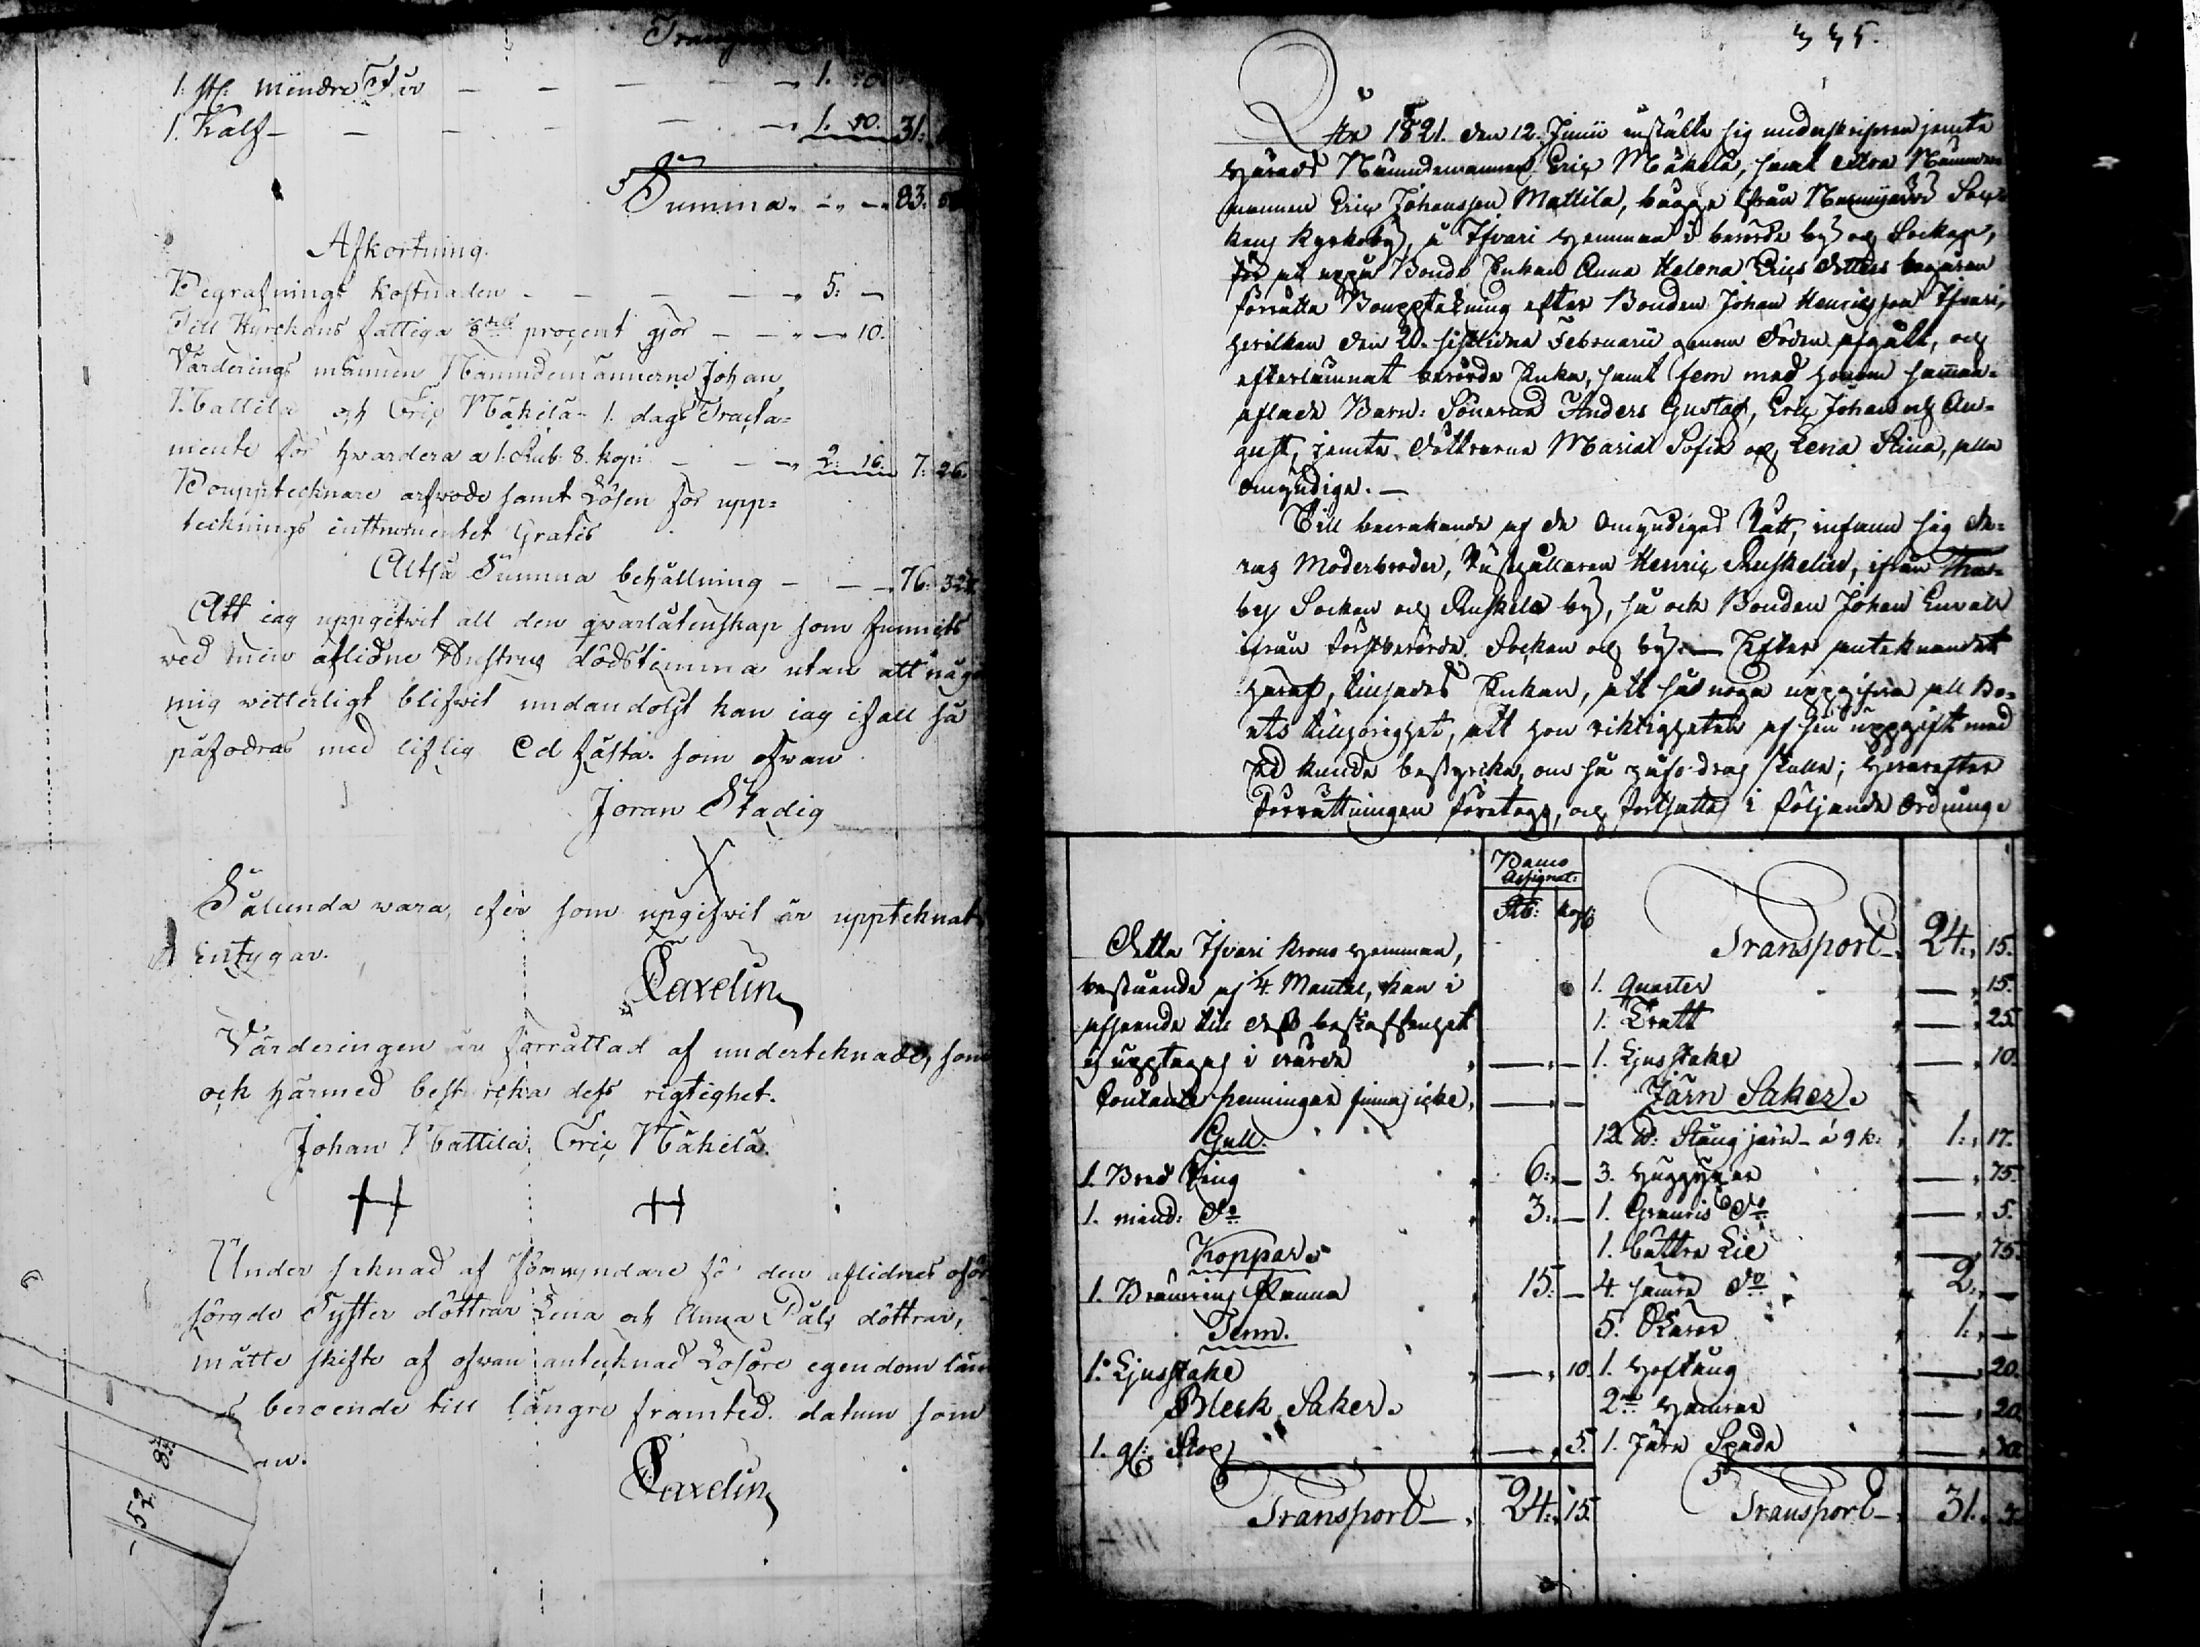 1. st: mindre Fur — — — — 1. 
1. Kalf — — — — — 1. 50. 31.
Summa. — — 83.
Afkortning.
Begrafnings kostnaden — — — — 5. —
Till Kyrckans fattiga procent gjör — — — 10.
Värderings männen Nämndemännerne Johan
Mattila och Eric Mäkilä 1. dags Tracta=
mente för hwardera a 1. Rub 8. kop: — — 2. 16. 7. 26.
Bouppteknare arfwode samt Lösen för upp=
tecknings instrumentet Gratis
Altså Summa behållning — — 76. 32
Att iag uppgifwit all den qwarlåtenskap som funnits
wed min aflidne Hustrus dödstimma utan att någ
mig witterligt blifwit undandolgt kan iag ifall så
påfodras med liflig Ed fästa. som ofwan
Joran Stadig
Sålunda wara, efter som upgifwit är uppteknat
Entygar.
Caxelin
Värderingen är förrättad af underteknade, som
ock härmed bestricka dess rigtighet.
Johan Mattila. Eric Mäkilä.
Under saknad af förmyndare för den aflidnes oför
sörgde Syster döttrar Lena och Anna Påls döttrar,
måtte skifte af ofwan antecknad Lösöre egendom läm
as beroende till längre framted. datum som
an.
Caxelin
52 83
335.
År 1821. den 12. Junii instälte sig underskrifven jemte
Härads Nämndemannen Eric Mäkelä, samt extra Nämnde
mannen Eric Johansson Mattila, bägge ifrån Nousiynen Soc=
kens Kyrkoby, å Ifvari Hemman i berörde by och Socken,
för att uppå Bonde Enkan Anna Helena Erics dotters begäran
förrätta Bouppteckning efter Bonden Johan Henricsson Ifvari,
hvilken den 20. sistlidne Februarii genom döden afgått, och
efterlämnat berörde Enka, samt fem med honom samman=
aflade Barn: Sönerna Anders Gustaf, Eric Johan och Au=
gust, jemte döttrarne Maria Sofia och Lena Stina, alla
omyndige. —
Till bevakande af de Omyndigas Rätt, infann sig de=
ras Moderbroder, Rusthållaren Henric Ruskelin, ifrån
by Socken och Ruskela by, så ock Bonden Johan Envall
ifrån förstberörde Socken och by. — Efter antecknandet
häraf, tilsades Enkan, att så noga uppgifva all Bo=
ets tillhörighet, att hon riktigheten af sin uppgift med
Ed kunde bestyrcka, om så påfordras skulle; Hvarefter
Förrättningen företogs, och fortsattes i följande Ordning.
Banco
Assignat:
Rb: kop:
Detta Ifvari krono Hemman,
bestående af 1/4 Mantal, kan i
afseende till dess beskaffenhet
ej upptagas i värde — —
Contante penningar finnas icke, — —
Gull.
1. Bred Ring 6. —
1. mind: Do 3. —
Koppar.
1. Bränvins Panna 15. —
Tenn.
1. Ljusstake — 10.
Bleck Saker.
1. gl: Stop — 5.
Transport — 24. 15.
Transport — 24. 15.
1. Quarter — 15.
1. Tratt — 25.
1. Ljusstake — 10.
Järn Saker.
12 ℔: Stång järn — á 9 k: 1. 17.
3. Huggyxor — 75.
1. Do — 5.
1. bättre Lie — 75.
4. sämre Do 2. —
5. Skäror 1. —
1. Hoftång — 20.
2ne Hamrar — 20.
1. Järn Spade — 30.
Transport — 31.